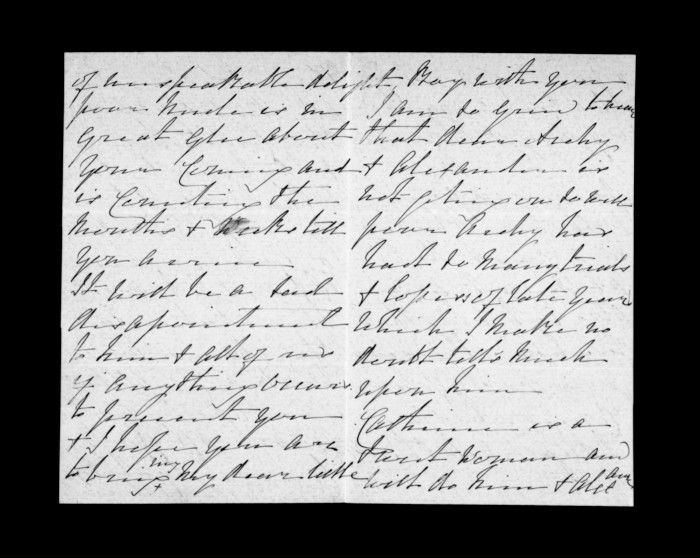 of unspeakable delight,
poor Uncle is in
great glee about
your Coming and
is Counting the
Months & Weeks till
you arrive
It will be a sad
disapointment
to him & all of us
if anything occurs
to prevent you
& I hope you are
to bring my dear little
Boy with you
I am so griv to hear
that dear Archy
& Alexander is
not geting on so well
poor Archy has
had so many trials
& losses of late years
which I make no
doubt tells much
upon him
Catherine is a
good Woman and
will do him & Alex